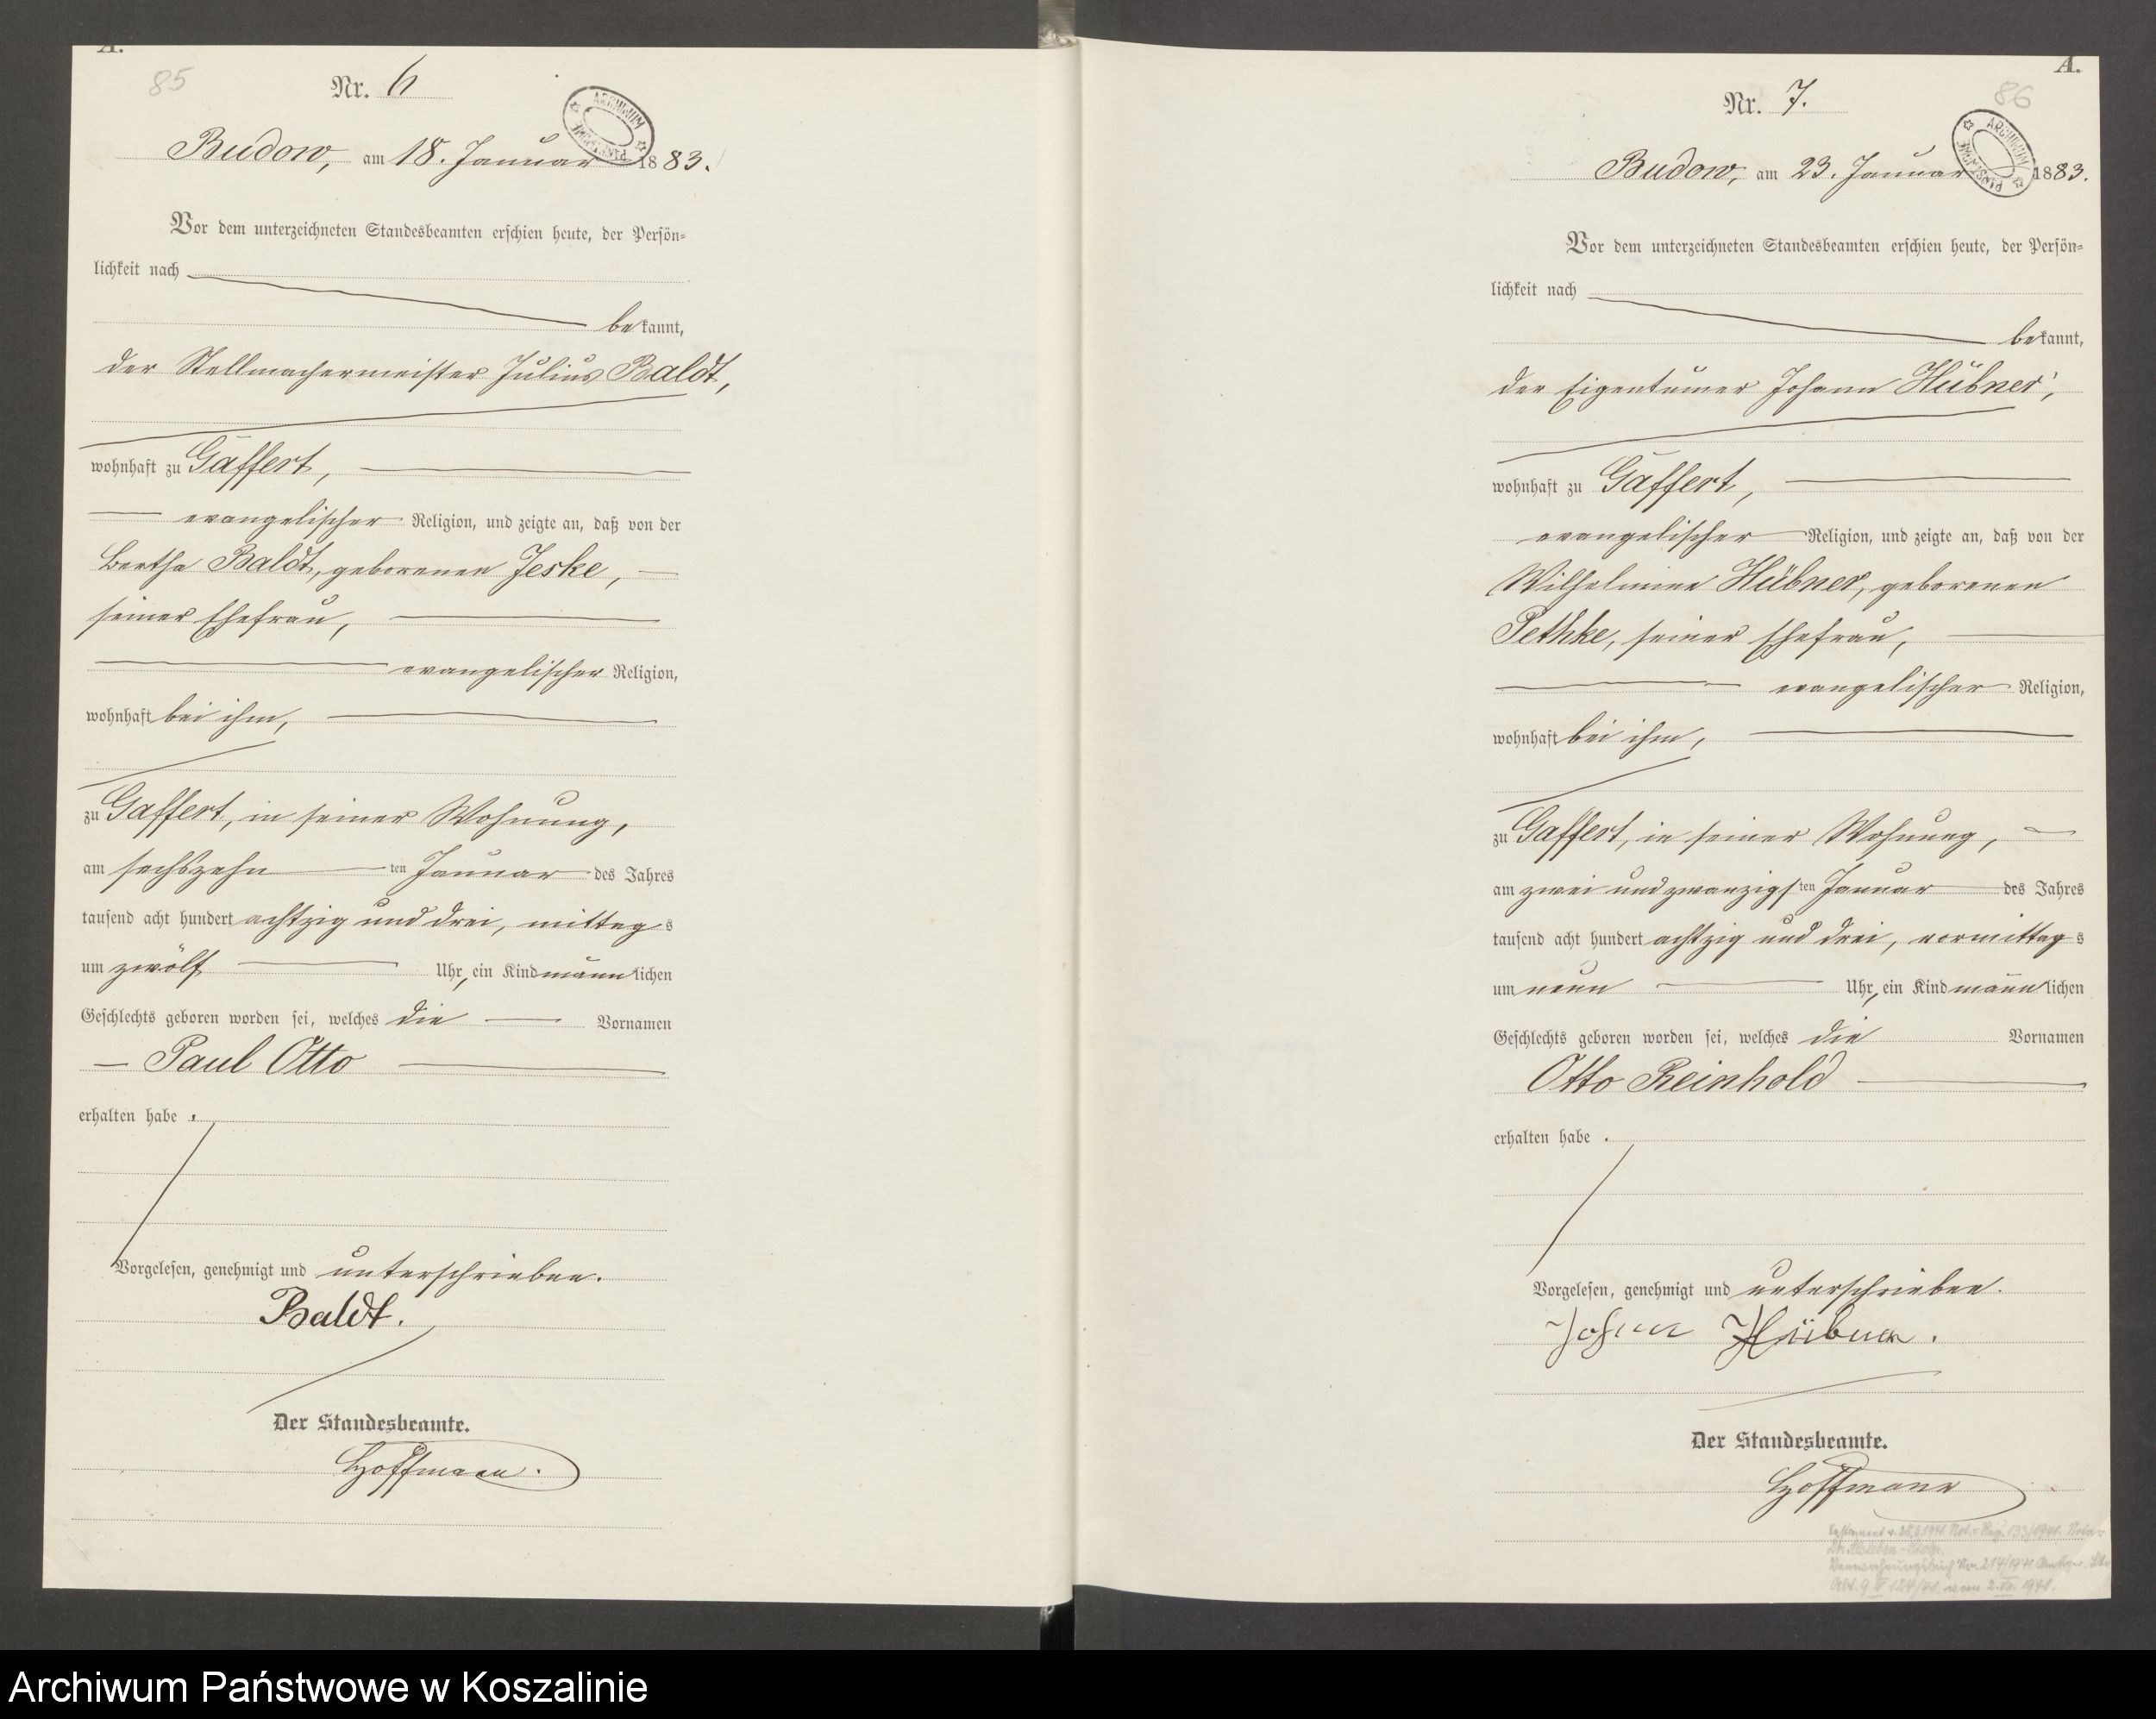 A.
85
Nr. 6
ARCHIWUM PAŃSTWOWE
Budow, am 18. Januar 1883.
Vor dem unterzeichneten Standesbeamten erschien heute, der Persön-
lichkeit nach
bekannt,
der Stellmachermeister Julius Baldt,
wohnhaft zu Gaffert,
evangelischer Religion, und zeigte an, daß von der
Bertha Baldt, geborenen Jeske,
seiner Ehefrau,
evangelischer Religion,
wohnhaft bei ihm,
zu Gaffert, in seiner Wohnung,
am sechszehn ten Januar des Jahres
tausend acht hundert achtzig und drei, mittags
um zwölf Uhr, ein Kind männlichen
Geschlechts geboren worden sei, welches die Vornamen
Paul Otto
erhalten habe.
Vorgelesen, genehmigt und unterschrieben.
Baldt.
Der Standesbeamte.
Hoffmann.
A.
86
Nr. 7.
ARCHIWUM PAŃSTWOWE
Budow, am 23. Januar 1883.
Vor dem unterzeichneten Standesbeamten erschien heute, der Persön-
lichkeit nach
bekannt,
der Eigentümer Johann Hübner,
wohnhaft zu Gaffert,
evangelischer Religion, und zeigte an, daß von der
Wilhelmine Hübner, geborenen
Pethke, seiner Ehefrau,
evangelischer Religion,
wohnhaft bei ihm,
zu Gaffert, in seiner Wohnung,
am zwei und zwanzigsten Januar des Jahres
tausend acht hundert achtzig und drei, vormittags
um neun Uhr, ein Kind männlichen
Geschlechts geboren worden sei, welches die Vornamen
Otto Reinhold
erhalten habe.
Vorgelesen, genehmigt und unterschrieben.
Johann Hübner.
Der Standesbeamte.
Hoffmann
Testament v. Not.- Reg. 133/1941. Notar
214/1941
1941.
Archiwum Państwowe w Koszalinie